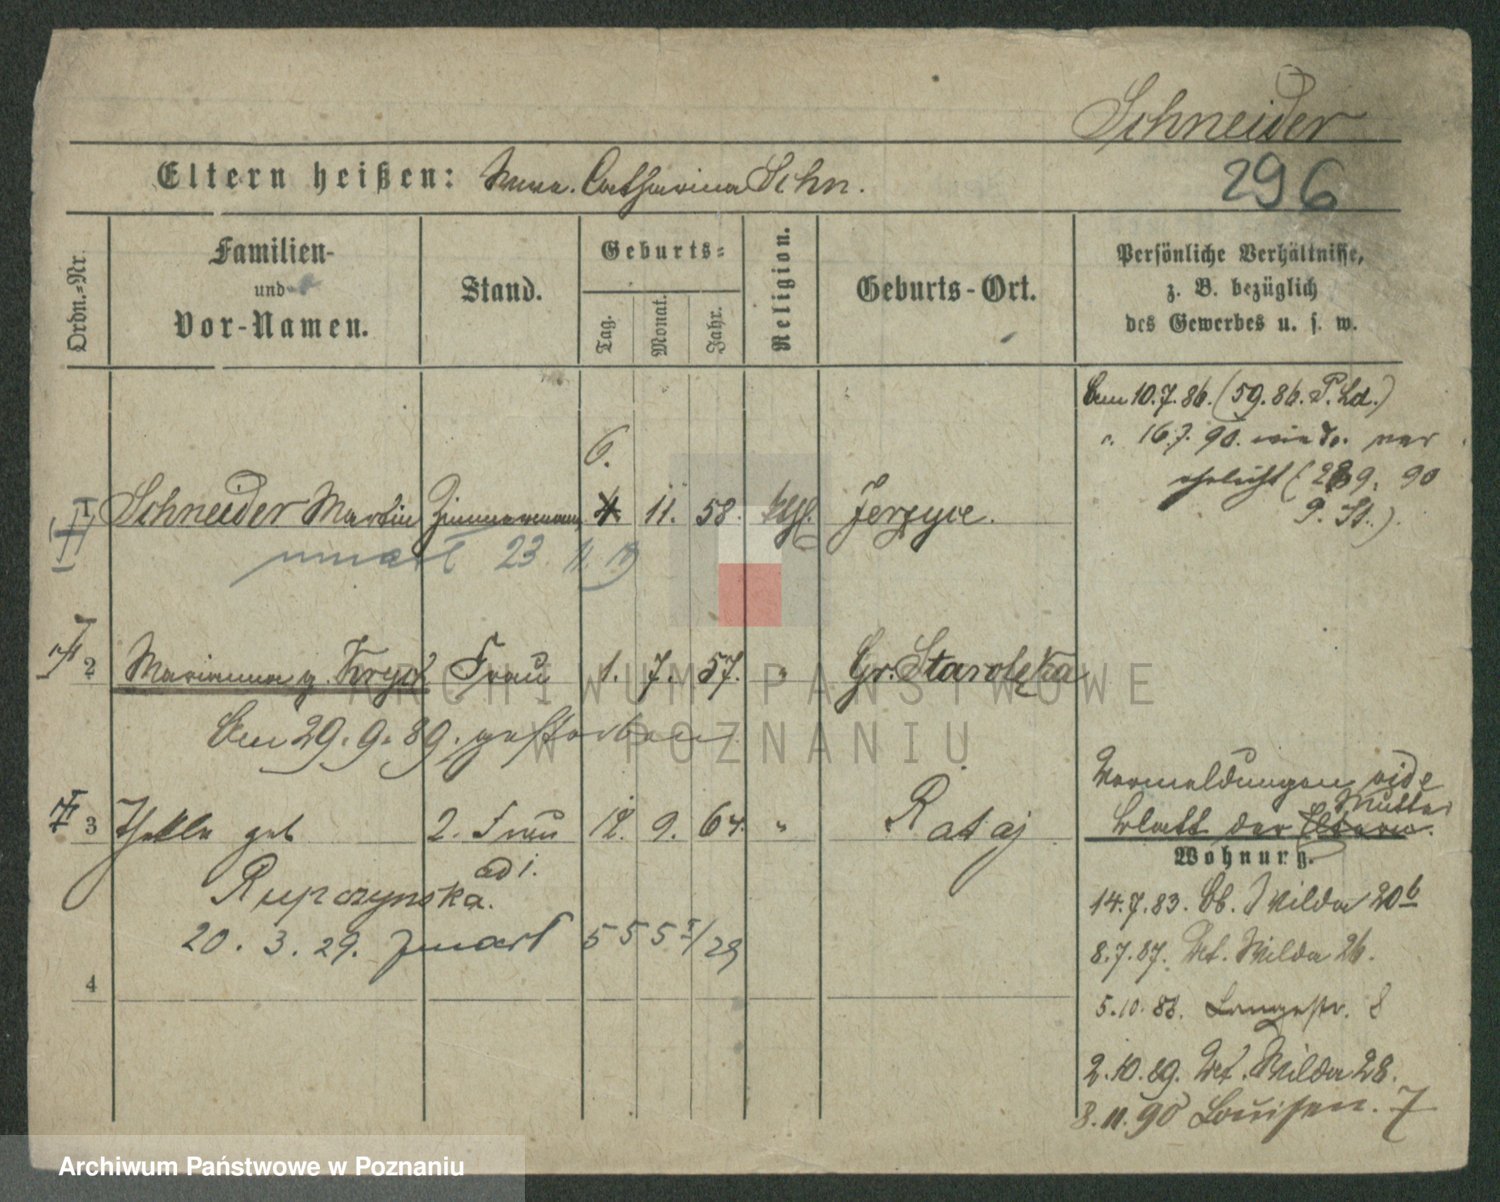 Schneider
296
Eltern heißen: Catharina Schn.
Ordn.-Nr.
Familien-
und
Vor-Namen.
Stand.
Geburts-
Tag.
Monat.
Jahr.
Religion.
Geburts-Ort.
Persönliche Verhältnisse,
z. B. bezüglich
des Gewerbes u. s. w.
Cum 10.7.86. (59.86. P. Ld.)
" 16.7. 90. wiedr. ver
ehelicht 9. 90
9. St.).
6.
1 Schneider Martin Zimmermann 11. 58. ktgl. Jerzyce.
umarł 23. 11. 19
2 Marianna g. Frau 1. 7. 57. " Gr. Starolęka
Am 29.9.89. gestorben
Vormeldungen vide
Mutter
3 Thekla geb 2. Frau 12. 9. 64. " Rataj Blatt der Eltern.
ad 1.
Rupczynska.
20. 3. 29. zmarł 555 I/29
4
Wohnung.
14.7.83. Ob. Wilda 20b
8.7.87. Ut. Wilda 26.
5.10.88. Langestr. 8
2.10.89. Ut. Wilda 28.
3.11.90 Louisen. 7
ARCHIWUM PAŃSTWOWE
W POZNANIU
Archiwum Państwowe w Poznaniu